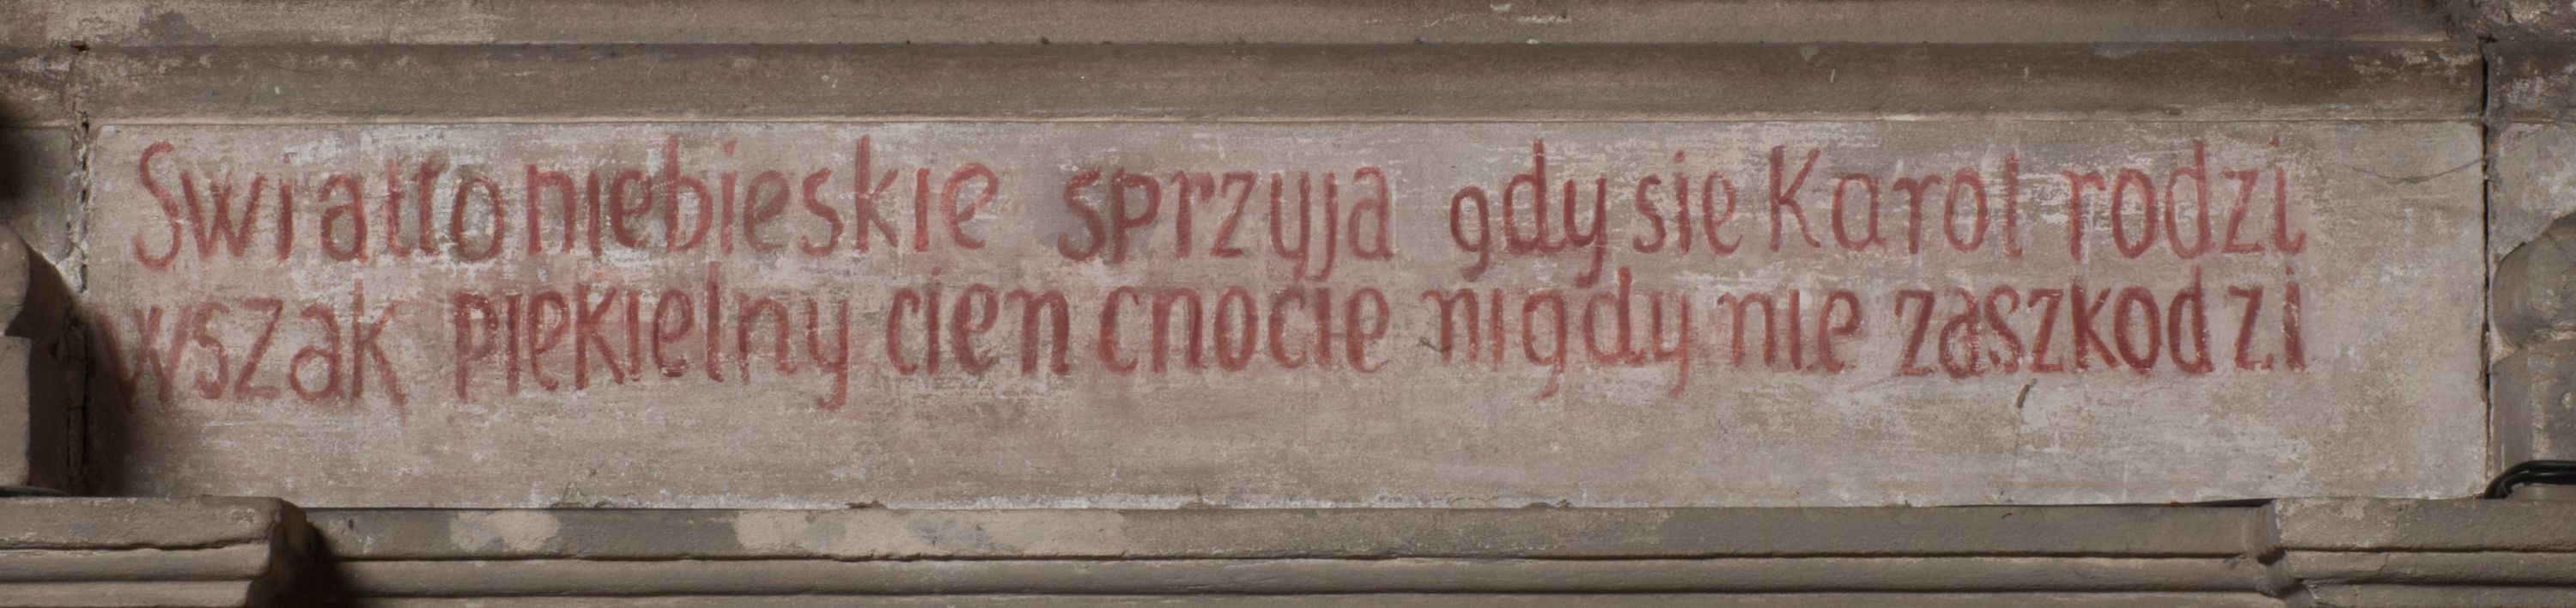 Swiatło niebieskie sprzyja gdy sie Karol rodzi
wszak piekielny cien cnocie nigdy nie zaszkodzi